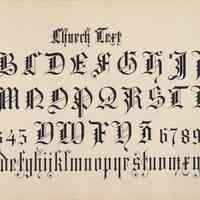 Church Text
BCDEFGHIJ
MNOPQRST
345 VWXYZ 6789
defghijklmnopqrstuvwxy